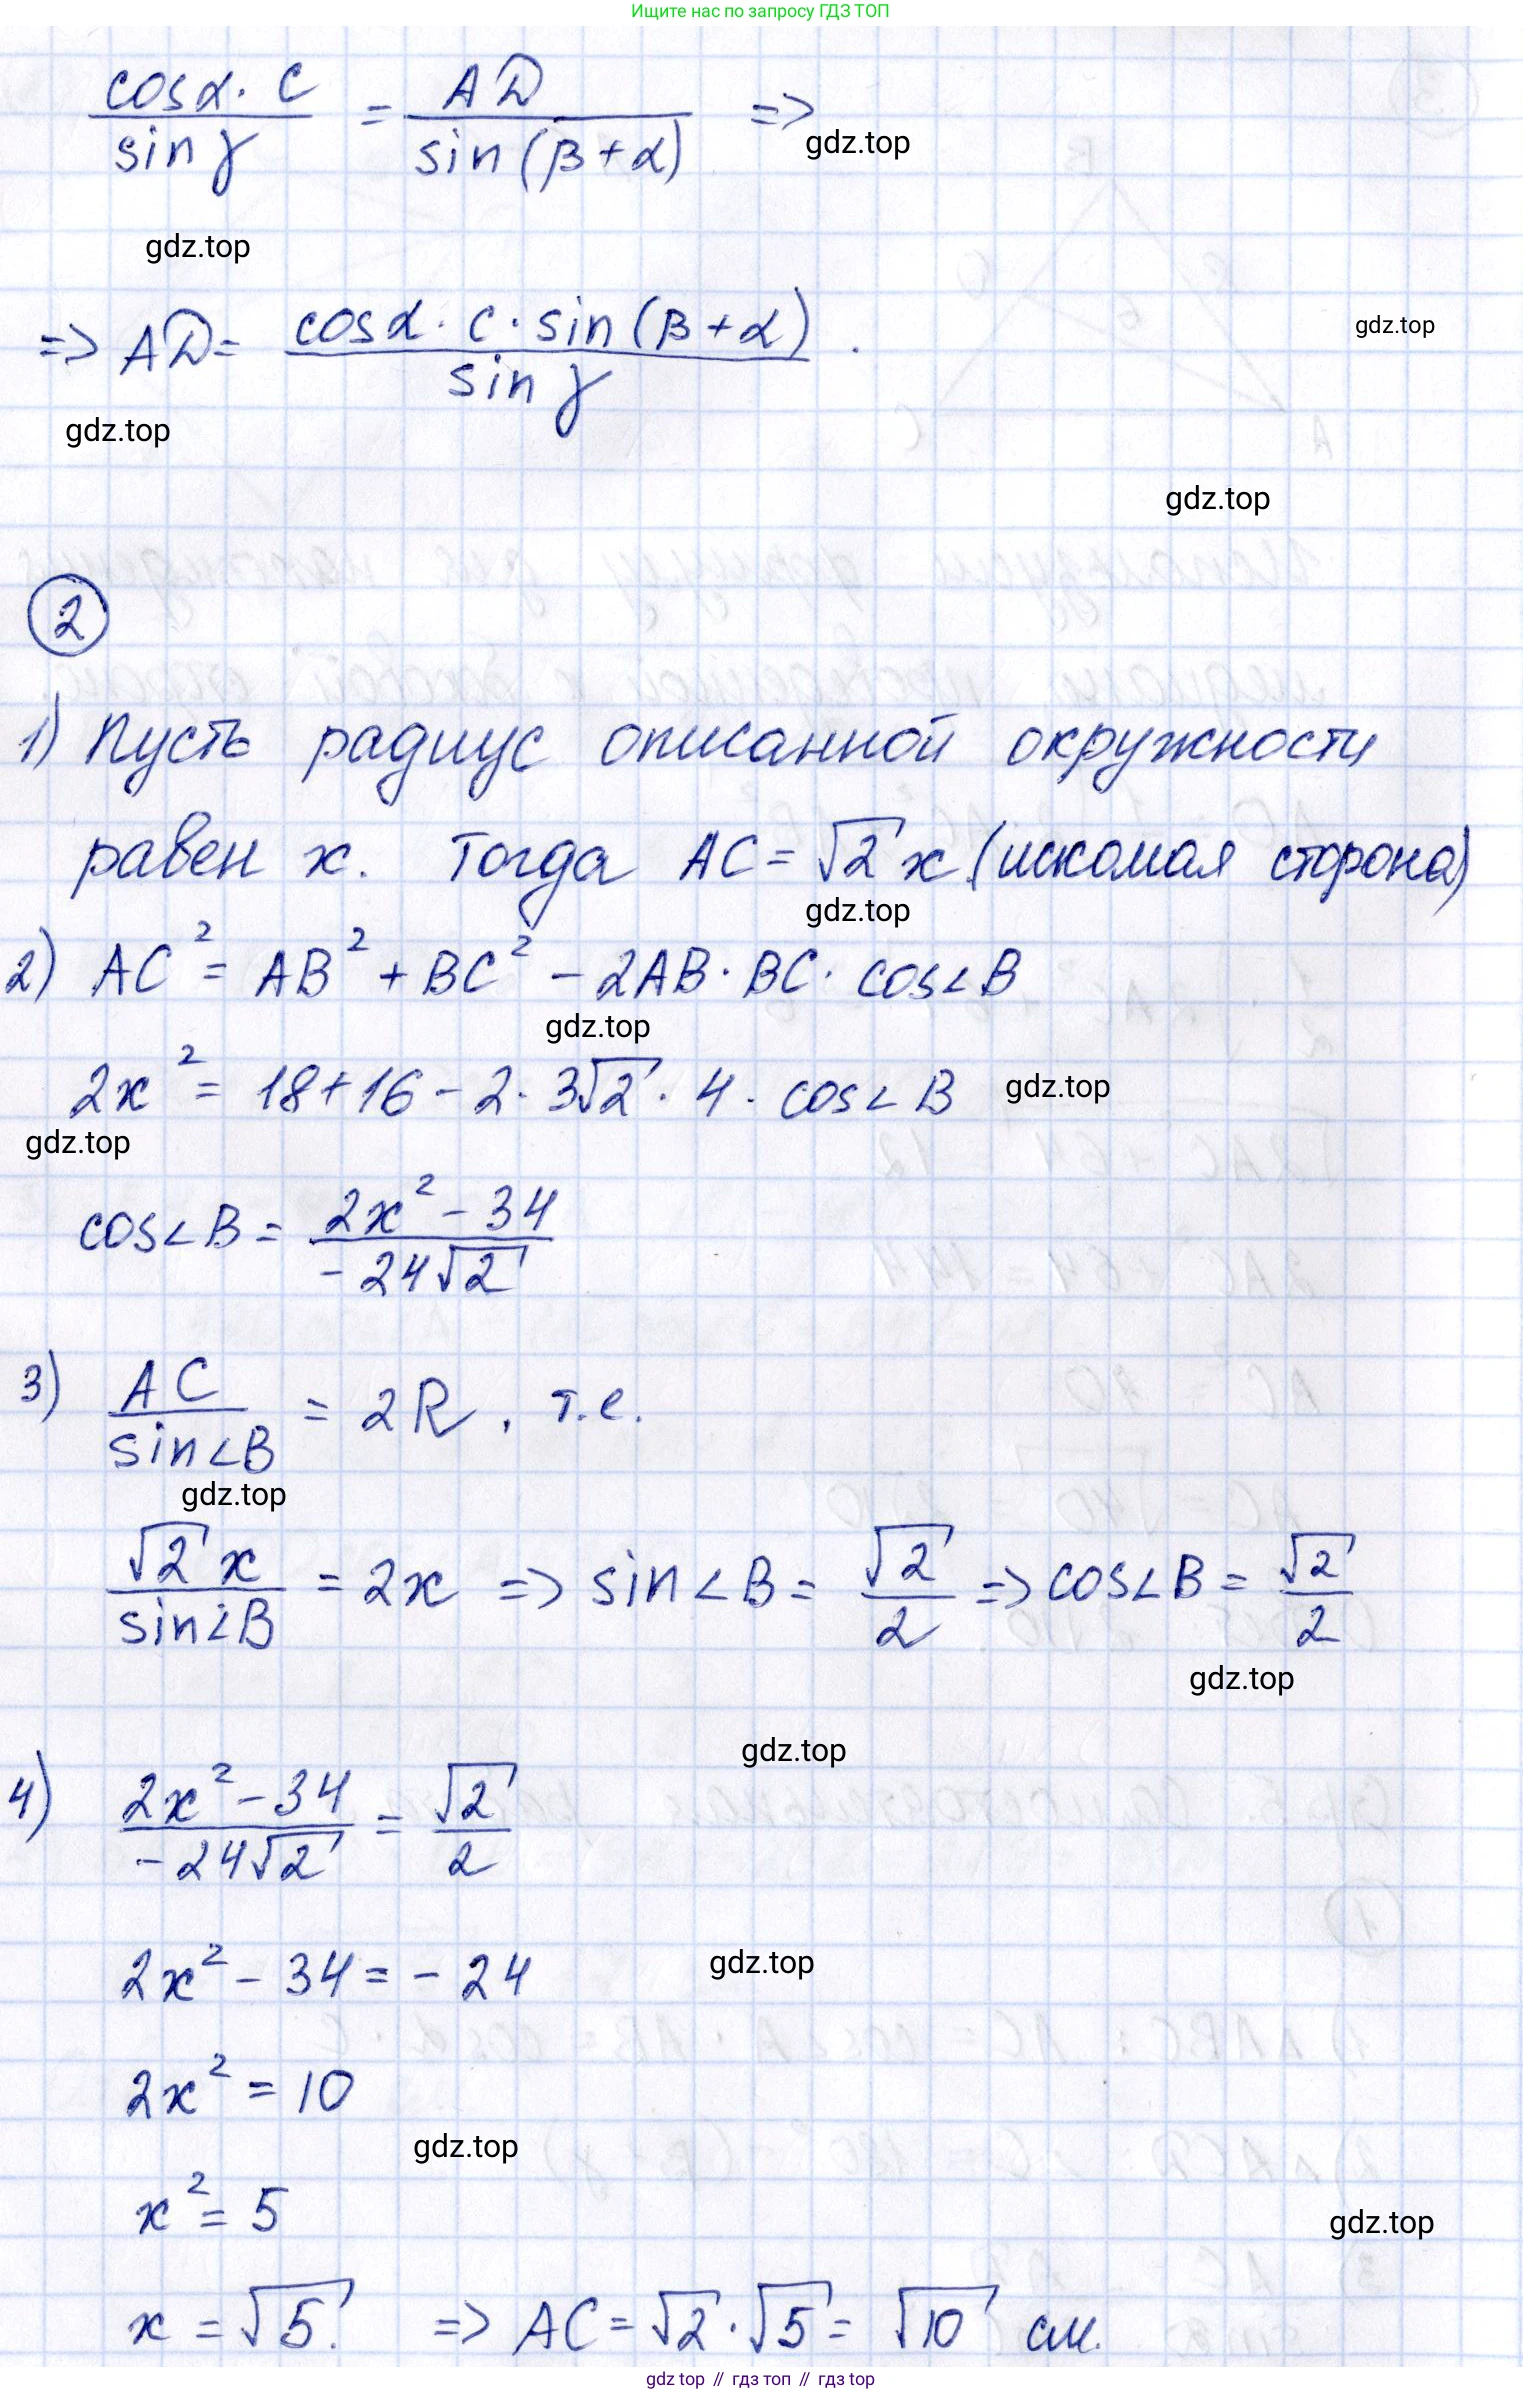 Ищите нас по запросу ГДЗ ТОП
cosα · c / sin γ = AD / sin(β+α) =>
gdz.top
gdz.top
=> AD = cosα · c · sin(β+α) / sin γ .
gdz.top
gdz.top
gdz.top
2
1) Пусть радиус описанной окружности
равен x. Тогда AC = √2 x (искомая сторона)
gdz.top
2) AC² = AB² + BC² - 2AB · BC · cos∠B
gdz.top
2x² = 18+16 - 2 · 3√2 · 4 · cos∠B
gdz.top
gdz.top
cos∠B = 2x² - 34 / -24√2
3) AC / sin∠B = 2R, т.е.
gdz.top
√2 x / sin∠B = 2x => sin∠B = √2 / 2 => cos∠B = √2 / 2
gdz.top
gdz.top
4) 2x² - 34 / -24√2 = √2 / 2
2x² - 34 = - 24
gdz.top
2x² = 10
gdz.top
x² = 5
gdz.top
x = √5. => AC = √2 · √5 = √10 см.
gdz top // гдз топ // гдз top